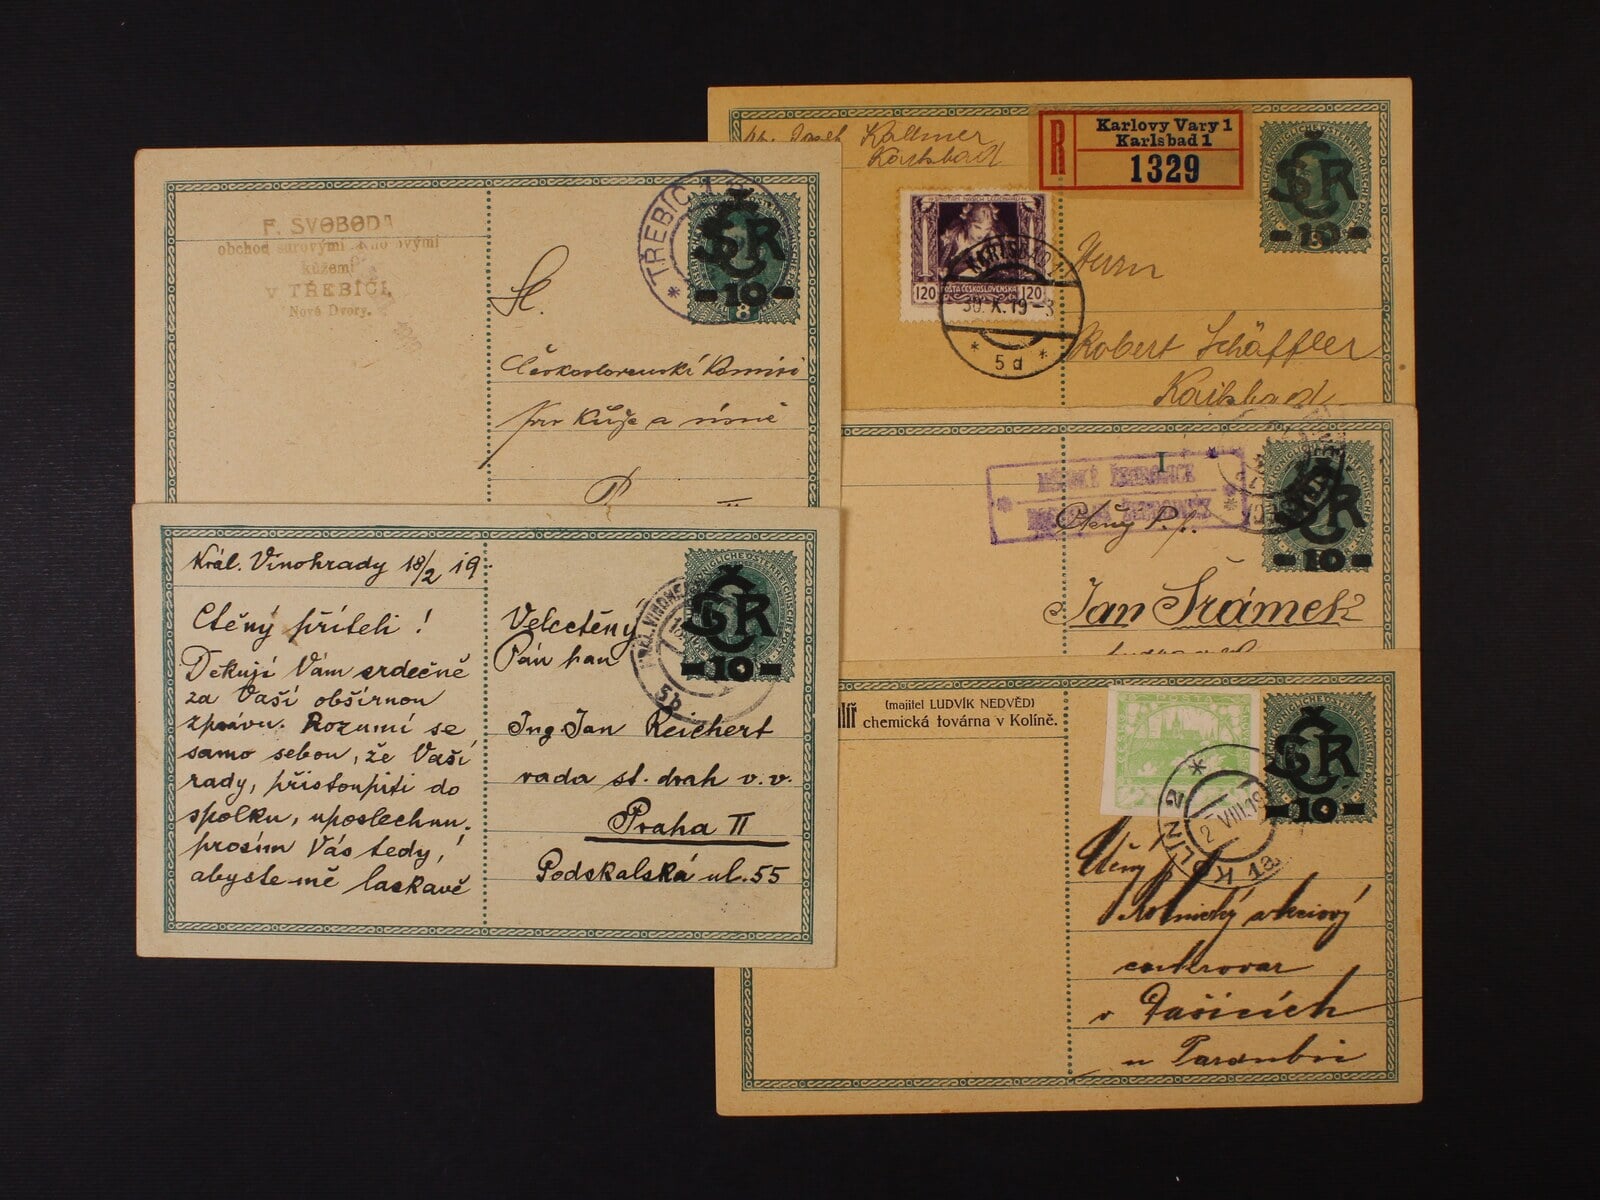 F. SVOBODA
obchod surovými
kůžemi
V TŘEBÍČI,
Nové Dvory.
* TŘEBÍČ 1
ČSR
-10-
8
Sl.
Československá Komise
pro Kůže a
P
Král. Vinohrady 18/2 19
Ctěný příteli!
Děkuji Vám srdečně
za Vaší obšírnou
zprávu. Rozumí se
samo sebou, že Vaší
rady, přistoupiti do
spolku, uposlechnu.
prosím Vás tedy,
abyste mě laskavě
KRÁL. VINOHRADY
5b
ČSR
-10-
Velectěný
Pán pan
Ing. Jan Reichert
rada st. drah v. v.
Praha II
Podskalská ul. 55
Josef Kallmer
Karlsbad
R
Karlovy Vary 1
Karlsbad 1
1329
ČSR
-10-
120 POŠTA ČESKOSLOVENSKÁ 120
KARLSBAD 1
30. X. 19 - 3
* 5d *
Herrn
Robert Schäffler
Karlsbad
ČSR
-10-
Ctěný P. t.
Jan Šrámek
(majitel LUDVÍK NEDVĚD)
chemická továrna v Kolíně.
POŠTA
KOLÍN 2
2 VIII. 19
1a
ČSR
-10-
Ctěný
Rolnický akciový
cukrovar
v Dašicích
u Pardubic